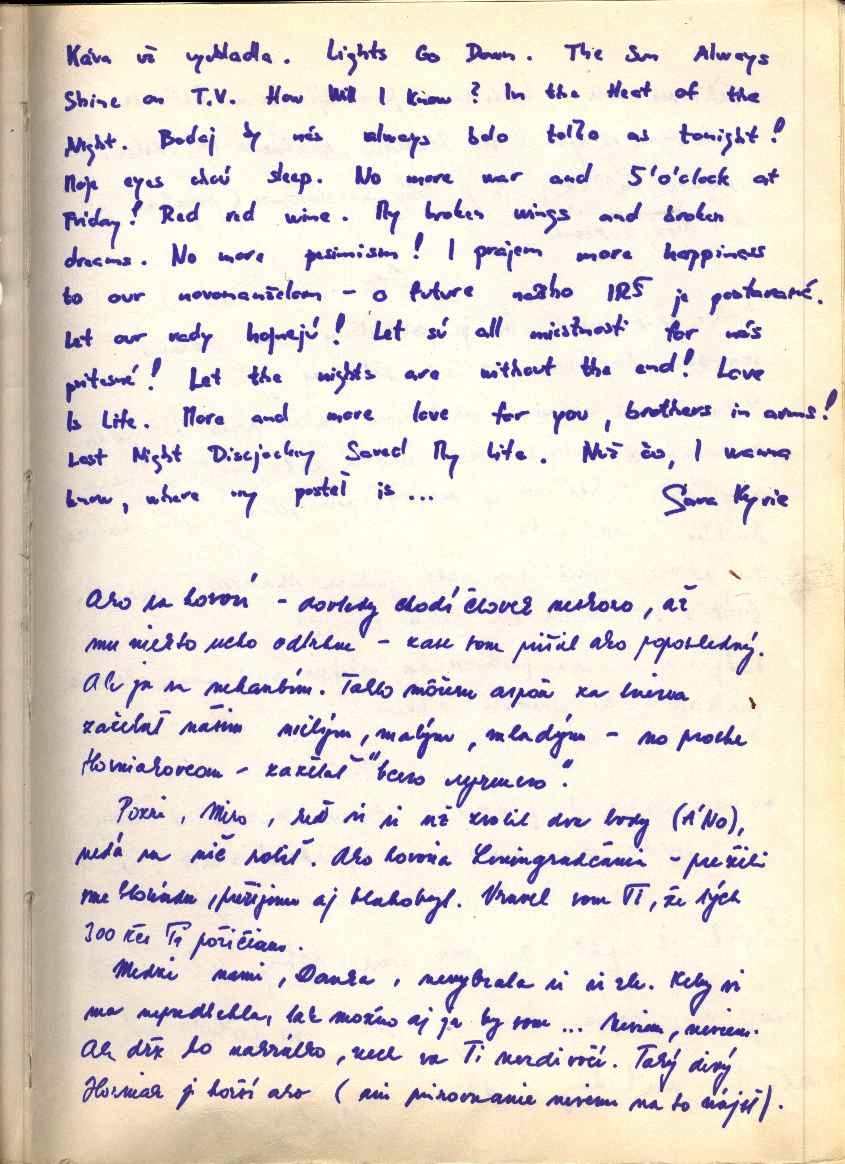 Káva už vychladla. Lights Go Down. The Sun Always
Shine on T.V. How Will I Know? In the Heat of the
Night. Bodaj by nás always bolo toľko as tonight!
Moje eyes chcú sleep. No more war and 5'o'clock at
Friday! Red red wine. My broken wings and broken
dreams. No more pesimism! I prajem more happiness
to our novomanželom – o future nášho IRŠ je postarané.
Let our rady hojnejú! Let sú all miestnosti for nás
pritesné! Let the nights are without the end! Love
Is Life. More and more love for you, brothers in arms!
Last Night Discjockey Saved My Life. Než čo, I wanna
know, where my posteľ is ... Sara Kyrie
Ako sa hovorí – dovtedy chodí človek neskoro, až
mu niekto ucho odtrhne – zase som prišiel ako poposledný.
Ale ja sa nehanbím. Takto môžem aspoň za
zaželať našim milým, malým, mladým – no proste
Horniakovcom – zaželať "
Pozri, Miro, keď si si už zrobil dva body (1'No),
nedá sa nič robiť. Ako hovoria Leningradčania – prežili
sme blokádu, prežijeme aj blahobyt. Vravel som Ti, že tých
300 Kčs Ti požičiam.
Medzi nami, Danka, nevybrala si si zle. Keby si
ma nepredbehla, tak možno aj ja by som ... Neviem, neviem.
Ale drž ho nakrátko, nech sa Ti nezdivočí. Taký divý
Horniak je horší ako (ani prirovnanie neviem na to nájsť).